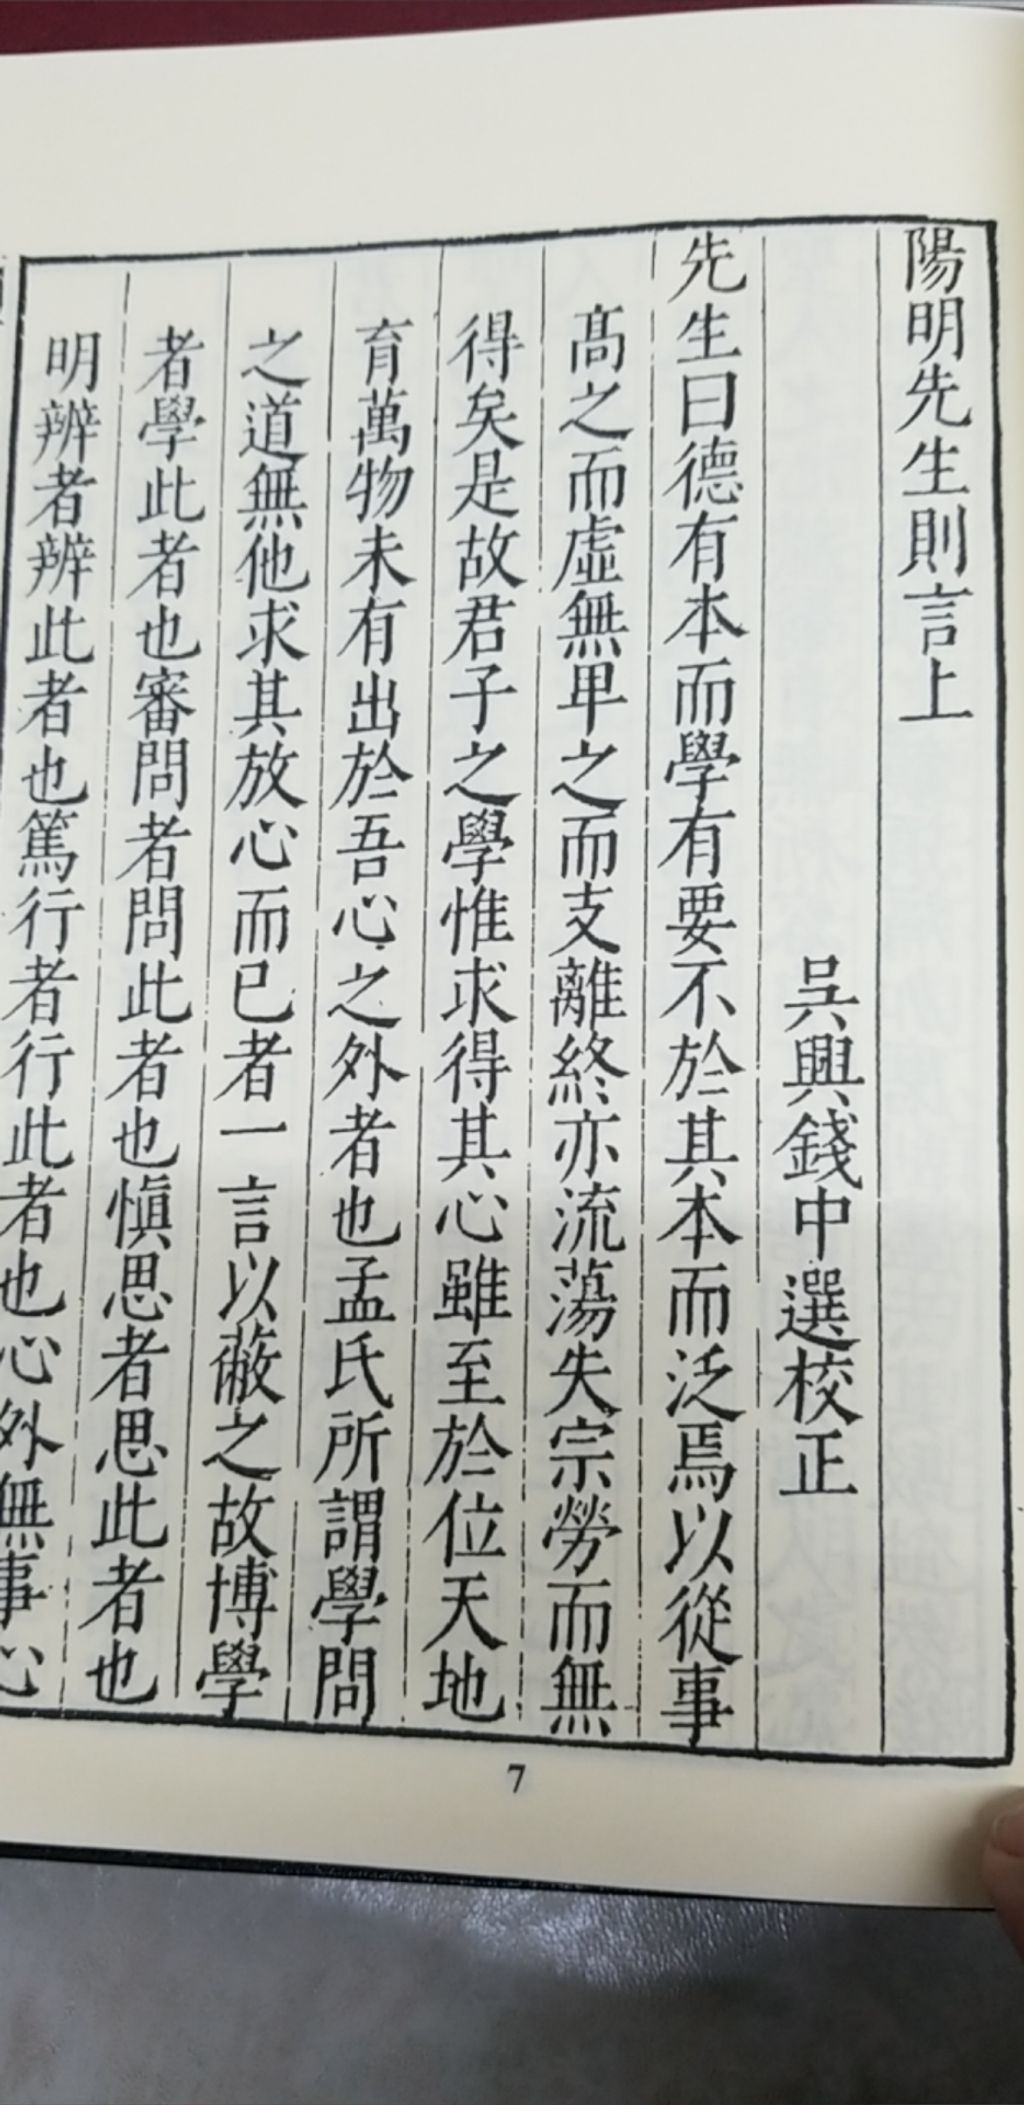 陽明先生則言上
吳興錢中選校正
先生曰德有本而學有要不於其本而泛焉以從事
髙之而虛無卑之而支離終亦流蕩失宗勞而無
得矣是故君子之學惟求得其心雖至於位天地
育萬物未有出於吾心之外者也孟氏所謂學問
之道無他求其放心而已者一言以蔽之故博學
者學此者也審問者問此者也愼思者思此者也
明辨者辨此者也篤行者行此者也心外無事心
7